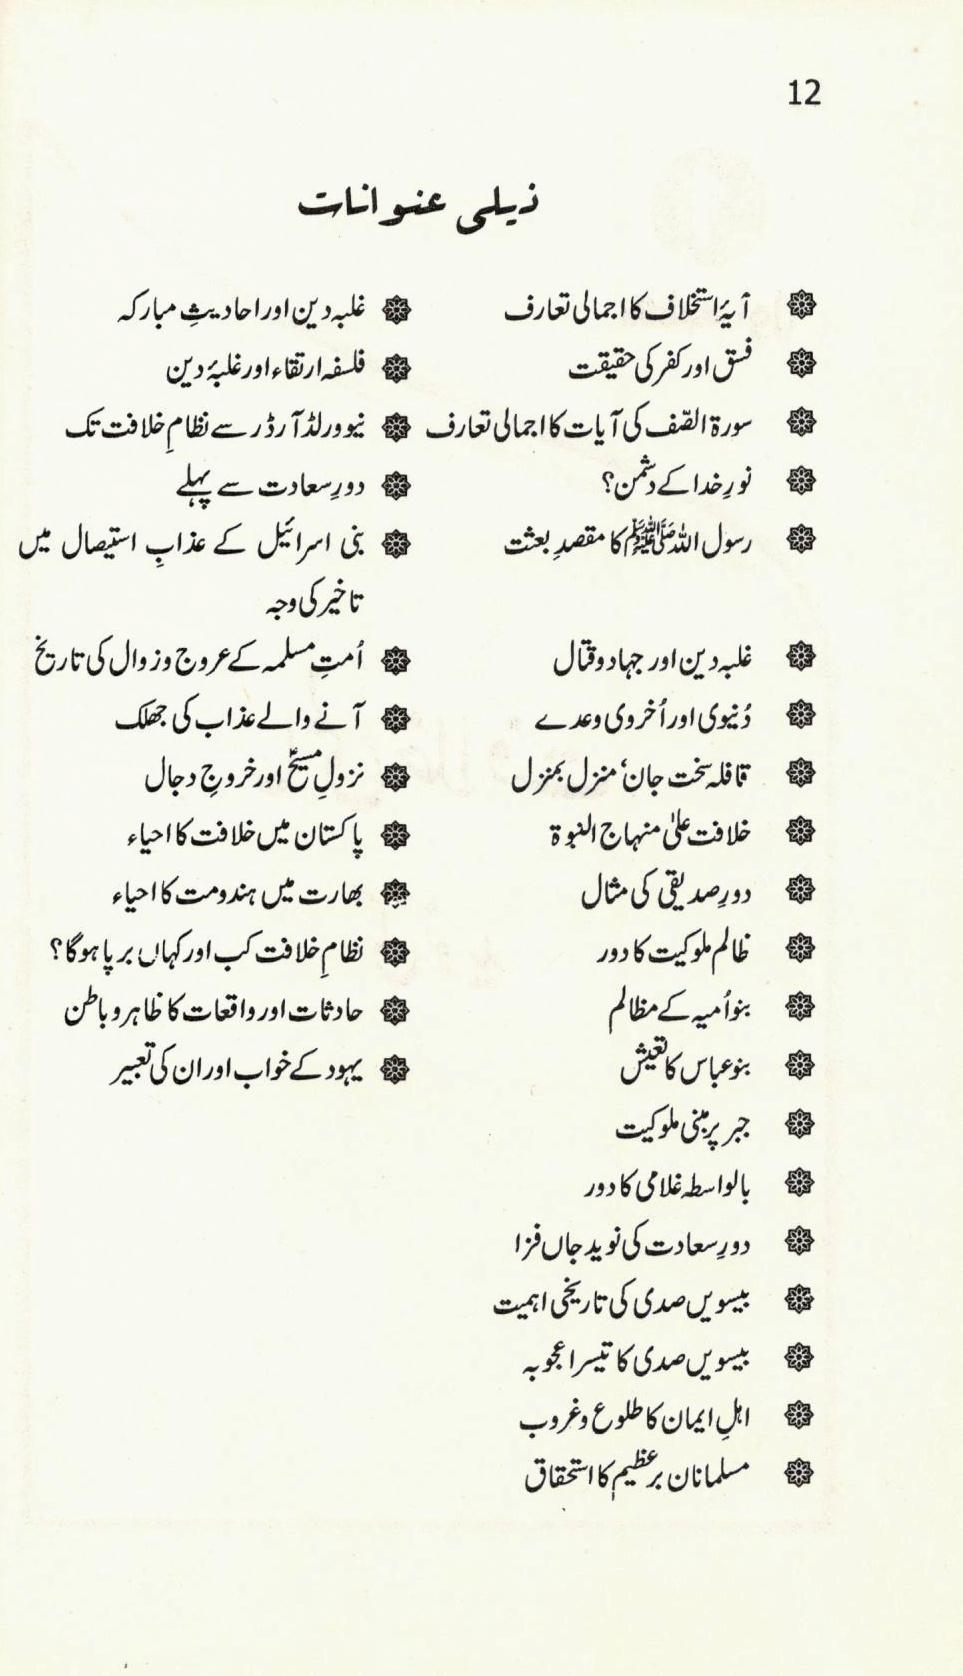 12
ذیلی عنوانات
آیۂ استخلاف کا اجمالی تعارف
فسق اور کفر کی حقیقت
سورۃ الصّف کی آیات کا اجمالی تعارف
نورِ خدا کے دشمن؟
رسول اللہ ﷺ کا مقصدِ بعثت
غلبہ دین اور جہاد و قتال
دُنیوی اور اُخروی وعدے
قافلہ سخت جان، منزل بمنزل
خلافت علیٰ منہاج النبوۃ
دورِ صدیقی کی مثال
ظالم ملوکیت کا دور
بنو اُمیہ کے مظالم
بنو عباس کا تعیش
جبر پر مبنی ملوکیت
بالواسطہ غلامی کا دور
دورِ سعادت کی نوید جاں فزا
بیسویں صدی کی تاریخی اہمیت
بیسویں صدی کا تیسرا عجوبہ
اہلِ ایمان کا طلوع و غروب
مسلمانان برعظیم کا استحقاق
غلبہ دین اور احادیثِ مبارکہ
فلسفہ ارتقاء اور غلبۂ دین
نیو ورلڈ آرڈر سے نظامِ خلافت تک
دورِ سعادت سے پہلے
بنی اسرائیل کے عذابِ استیصال میں
تاخیر کی وجہ
اُمتِ مسلمہ کے عروج و زوال کی تاریخ
آنے والے عذاب کی جھلک
نزولِ مسیحؑ اور خروجِ دجال
پاکستان میں خلافت کا احیاء
بھارت میں ہندومت کا احیاء
نظامِ خلافت کب اور کہاں برپا ہوگا؟
حادثات اور واقعات کا ظاہر و باطن
یہود کے خواب اور ان کی تعبیر